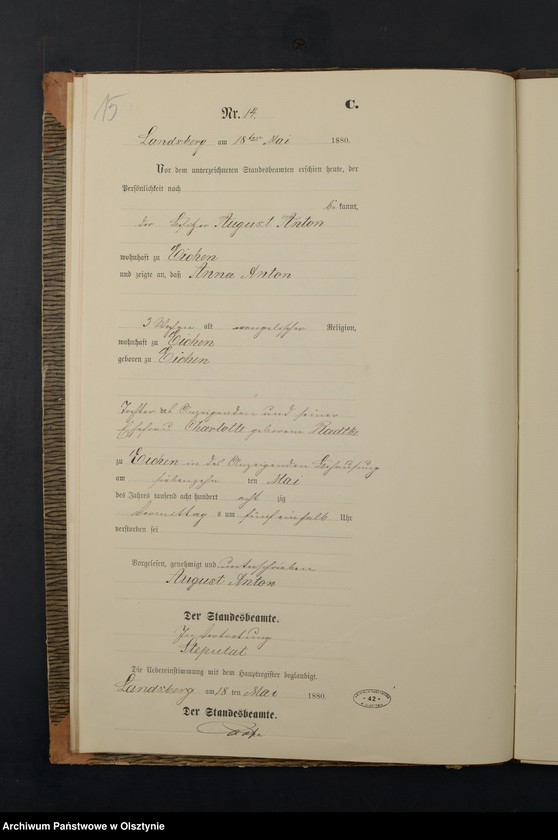 15
C.
Nr. 14.
Landsberg am 18ten Mai 1880.
Vor dem unterzeichneten Standesbeamten erschien heute, der
Persönlichkeit nach
be kannt,
der Besitzer August Anton
wohnhaft zu Eichen
und zeigte an, daß Anna Anton
3 Wochen alt evangelischer Religion,
wohnhaft zu Eichen
geboren zu Eichen
Tochter des Anzeigenden und seiner
Ehefrau Charlotte geborene Radtke
zu Eichen in des Anzeigenden Behausung
am siebenzehn ten Mai
des Jahres tausend acht hundert acht zig
Vormittag s um fünf einhalb Uhr
verstorben sei
Vorgelesen, genehmigt und unterschrieben
August Anton
Der Standesbeamte.
In Vertretung
Die Uebereinstimmung mit dem Hauptregister beglaubigt.
Landsberg am 18 ten Mai 1880.
Der Standesbeamte.
42
Archiwum Państwowe w Olsztynie